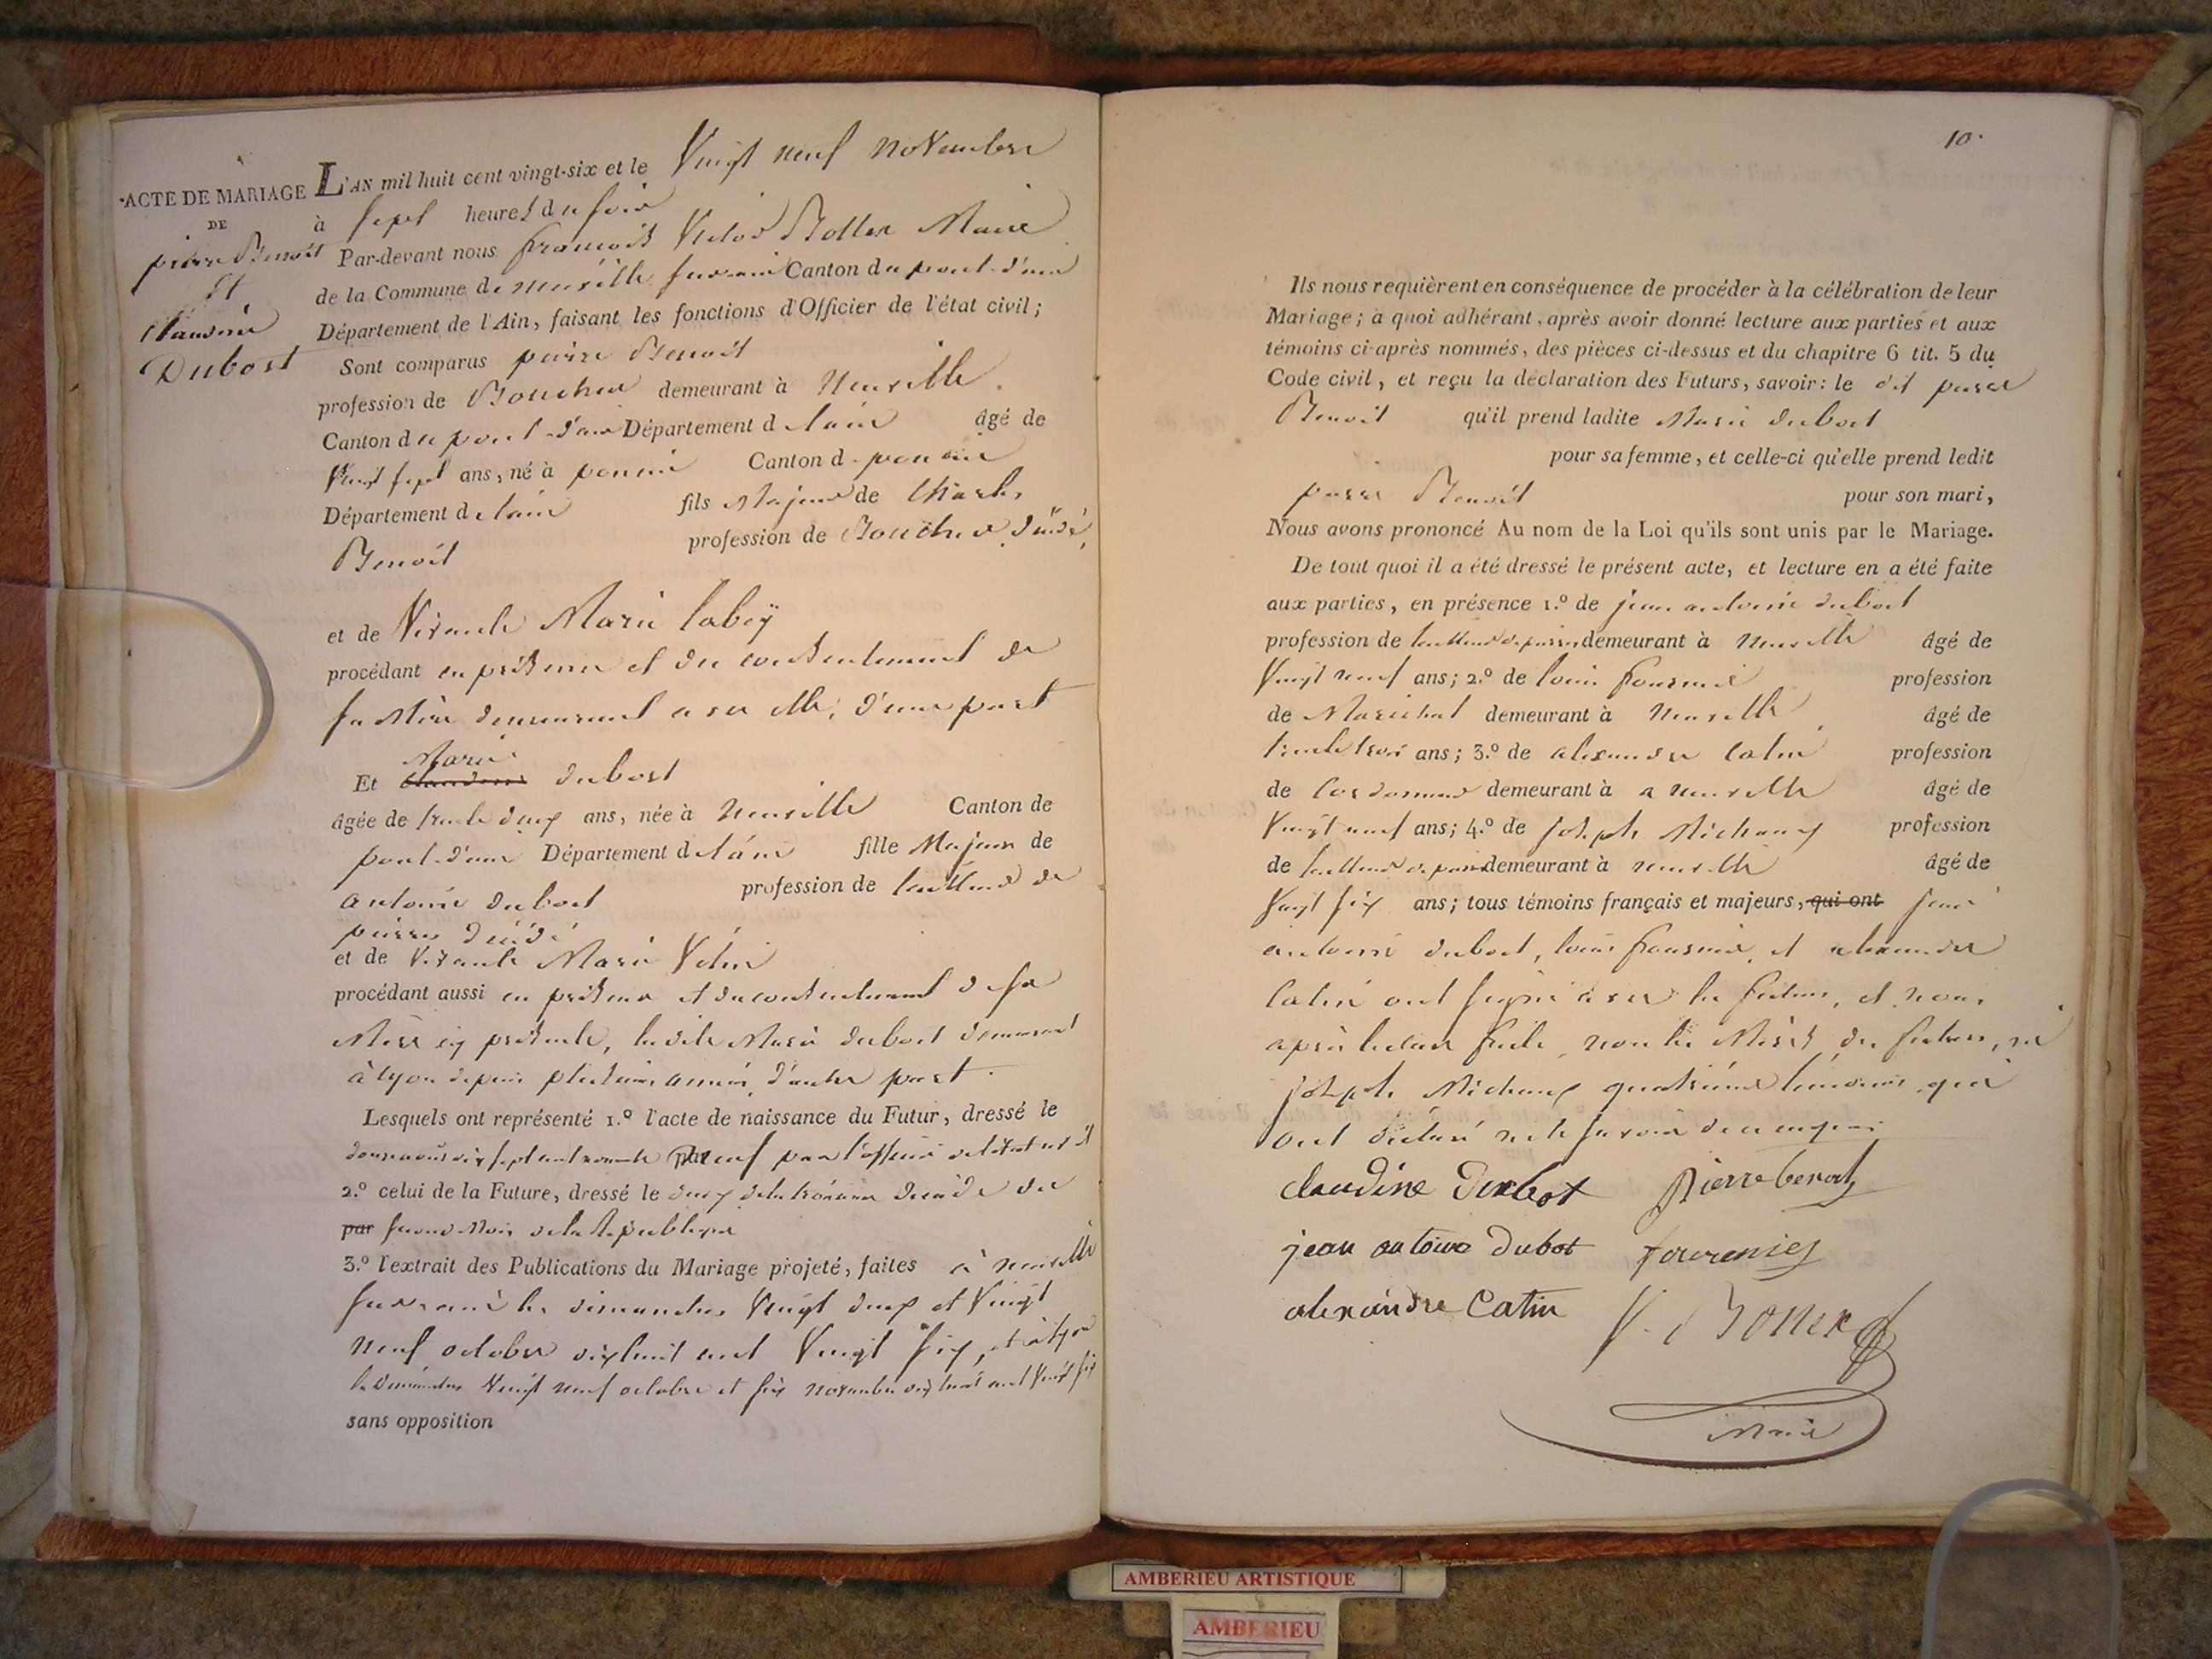 ACTE DE MARIAGE
DE
pierre Benoit
et
Claudine
Dubost
L'AN mil huit cent vingt-six et le Vingt neuf Novembre
à sept heures du soir
Par-devant nous francois Victor Bottex Maire
de la Commune de neuville sur ain Canton du pont-d'ain
Département de l'Ain, faisant les fonctions d'Officier de l'état civil;
Sont comparus pierre Benoit
profession de Boucher demeurant à Neuville
Canton du pont-d'ain Département de lain âgé de
Vingt sept ans, né à poncin Canton de poncin
Département de lain fils Majeur de Charles
Benoit profession de Boucher décédé
et de Vivante Marie labey
procédant en présence et du consentement de
sa Mère demeurant a neuville, d'une part
Et Claudine Marie dubost
âgée de trente deux ans, née à Neuville Canton de
pont-d'ain Département de lain fille Majeure de
antoine dubost profession de tailleur de
pierres décédé
et de Vivante Marie Velin
procédant aussi en présence et du consentement de sa
Mère ici présente, ladite Marie dubost demeurant
à lyon depuis plusieurs années, d'autre part.
Lesquels ont représenté 1.º l'acte de naissance du Futur, dressé le
douze août dix sept cent nonante neuf par l'officier de létat civil
2.º celui de la Future, dressé le deux de la troisième décade du
par second mois de la République
3.º l'extrait des Publications du Mariage projeté, faites à neuville
sur ain les dimanches Vingt deux et Vingt
neuf octobre dix huit cent Vingt six, et à lyon
les dimanches Vingt neuf octobre et six novembre dix huit cent Vingt six
sans opposition
10.
Ils nous requièrent en conséquence de procéder à la célébration de leur
Mariage; à quoi adhérant, après avoir donné lecture aux parties et aux
témoins ci-après nommés, des pièces ci-dessus et du chapitre 6 tit. 5 du
Code civil, et reçu la déclaration des Futurs, savoir: le dit pierre
Benoit qu'il prend ladite Marie dubost
pour sa femme, et celle-ci qu'elle prend ledit
pierre Benoit pour son mari,
Nous avons prononcé Au nom de la Loi qu'ils sont unis par le Mariage.
De tout quoi il a été dressé le présent acte, et lecture en a été faite
aux parties, en présence 1.º de jean antoine dubost
profession de tailleur de pierres demeurant à Neuville âgé de
Vingt neuf ans; 2.º de louis fournier profession
de Maréchal demeurant à Neuville âgé de
trente trois ans; 3.º de alexandre Catin profession
de Cordonnier demeurant à a neuville âgé de
Vingt neuf ans; 4.º de joseph Michaux profession
de tailleur de pierres demeurant à neuville âgé de
Vingt six ans; tous témoins français et majeurs, qui ont jean
antoine dubost, louis fournier, et alexandre
Catin ont signé avec les futurs, et nous
après lecture faite, non les Mères des futurs, ni
joseph Michaux quatrième témoin qui
ont déclaré ne le savoir de ce enquis
claudine Dubost Pierre benoit
jean antoine dubot fournier
alexandre Catin V. Bottex
Maire
AMBERIEU ARTISTIQUE
AMBERIEU